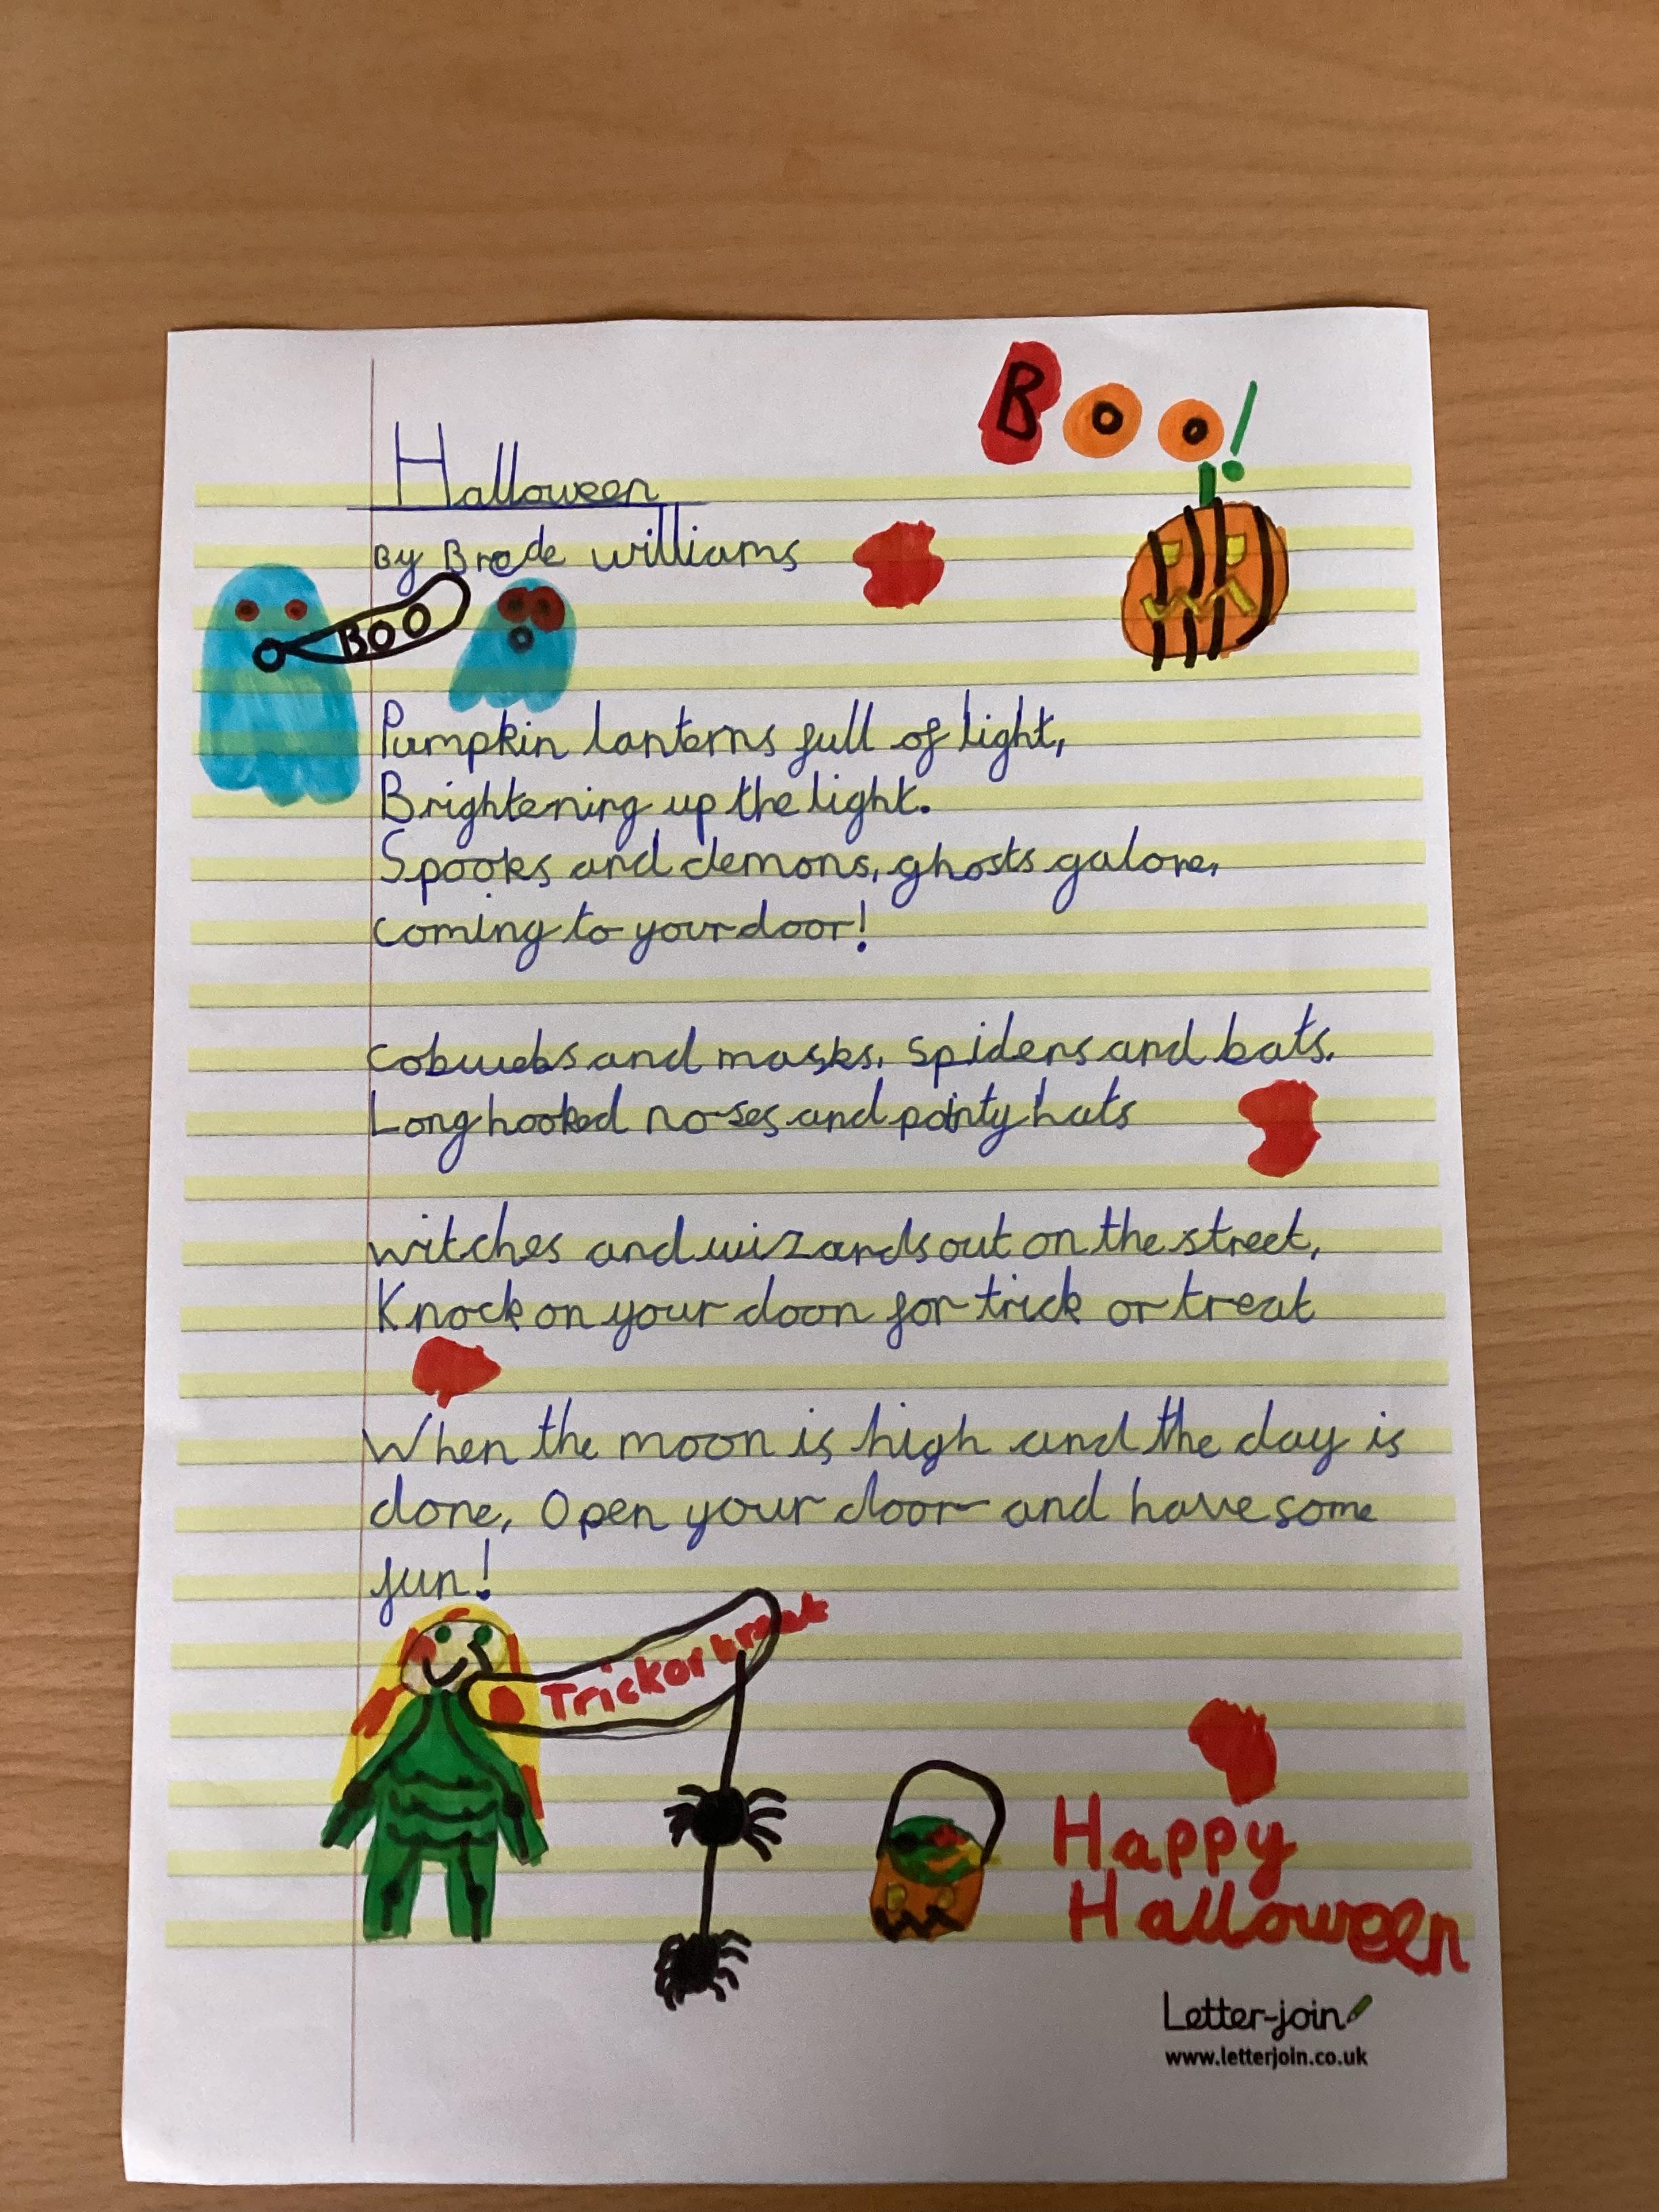 Boo!
Halloween
By Brode williams
BOO
Pumpkin lanterns full of light,
Brightening up the light.
Spooks and demons, ghosts galore,
coming to your door!
cobwebs and masks, spiders and bats.
Long hooked noses and pointy hats
witches and wizards out on the street,
Knock on your door for trick or treat
When the moon is high and the day is
done, Open your door and have some
fun!
Trick or treat
Happy
Halloween
Letter-join
www.letterjoin.co.uk